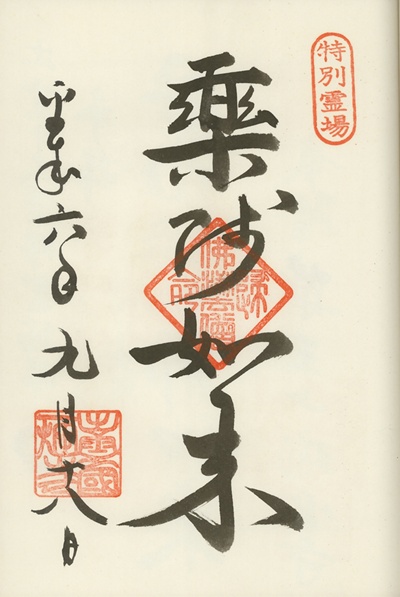 特別霊場
薬師如来
平成六年九月十八日